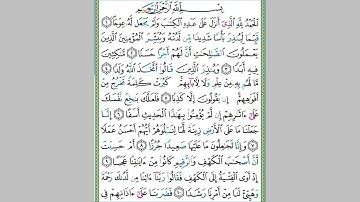 بِسْمِ ٱللَّهِ ٱلرَّحْمَٰنِ ٱلرَّحِيمِ
ٱلْحَمْدُ لِلَّهِ ٱلَّذِىٓ أَنزَلَ عَلَىٰ عَبْدِهِ ٱلْكِتَٰبَ وَلَمْ يَجْعَل لَّهُۥ عِوَجَا ۜ ١
قَيِّمًا لِّيُنذِرَ بَأْسًا شَدِيدًا مِّن لَّدُنْهُ وَيُبَشِّرَ ٱلْمُؤْمِنِينَ ٱلَّذِينَ
يَعْمَلُونَ ٱلصَّٰلِحَٰتِ أَنَّ لَهُمْ أَجْرًا حَسَنًا ٢ مَّٰكِثِينَ
فِيهِ أَبَدًا ٣ وَيُنذِرَ ٱلَّذِينَ قَالُوا۟ ٱتَّخَذَ ٱللَّهُ وَلَدًا ٤
مَّا لَهُم بِهِۦ مِنْ عِلْمٍ وَلَا لِـَٔابَآئِهِمْ ۚ كَبُرَتْ كَلِمَةً تَخْرُجُ مِنْ
أَفْوَٰهِهِمْ ۚ إِن يَقُولُونَ إِلَّا كَذِبًا ٥ فَلَعَلَّكَ بَٰخِعٌ نَّفْسَكَ
عَلَىٰٓ ءَاثَٰرِهِمْ إِن لَّمْ يُؤْمِنُوا۟ بِهَٰذَا ٱلْحَدِيثِ أَسَفًا ٦ إِنَّا
جَعَلْنَا مَا عَلَى ٱلْأَرْضِ زِينَةً لَّهَا لِنَبْلُوَهُمْ أَيُّهُمْ أَحْسَنُ عَمَلًا
٧ وَإِنَّا لَجَٰعِلُونَ مَا عَلَيْهَا صَعِيدًا جُرُزًا ٨ أَمْ حَسِبْتَ
أَنَّ أَصْحَٰبَ ٱلْكَهْفِ وَٱلرَّقِيمِ كَانُوا۟ مِنْ ءَايَٰتِنَا عَجَبًا ٩
إِذْ أَوَى ٱلْفِتْيَةُ إِلَى ٱلْكَهْفِ فَقَالُوا۟ رَبَّنَآ ءَاتِنَا مِن لَّدُنكَ رَحْمَةً
وَهَيِّئْ لَنَا مِنْ أَمْرِنَا رَشَدًا ١٠ فَضَرَبْنَا عَلَىٰٓ ءَاذَانِهِمْ فِى